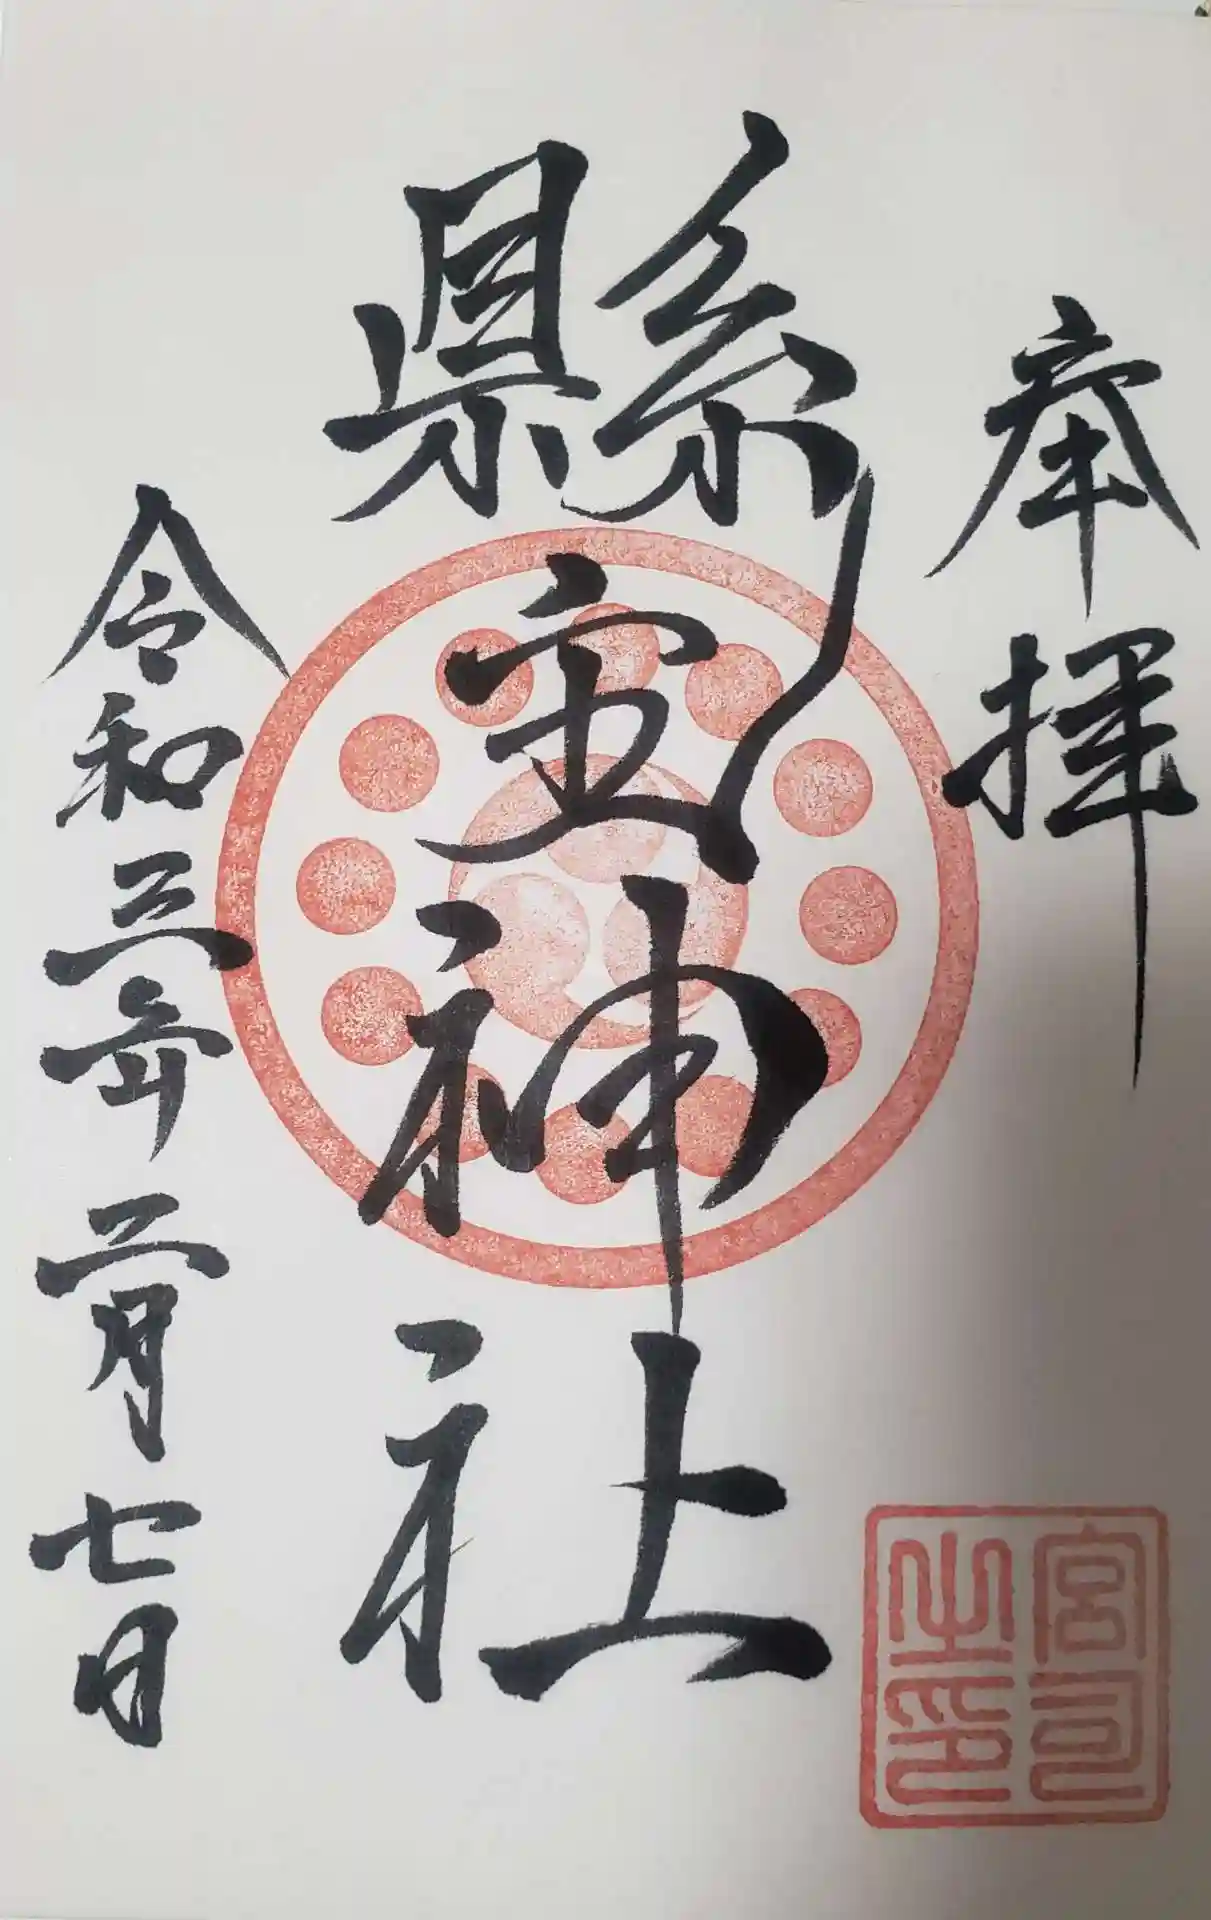 奉拝
縣宝神社
令和三年二月七日
宮司之印